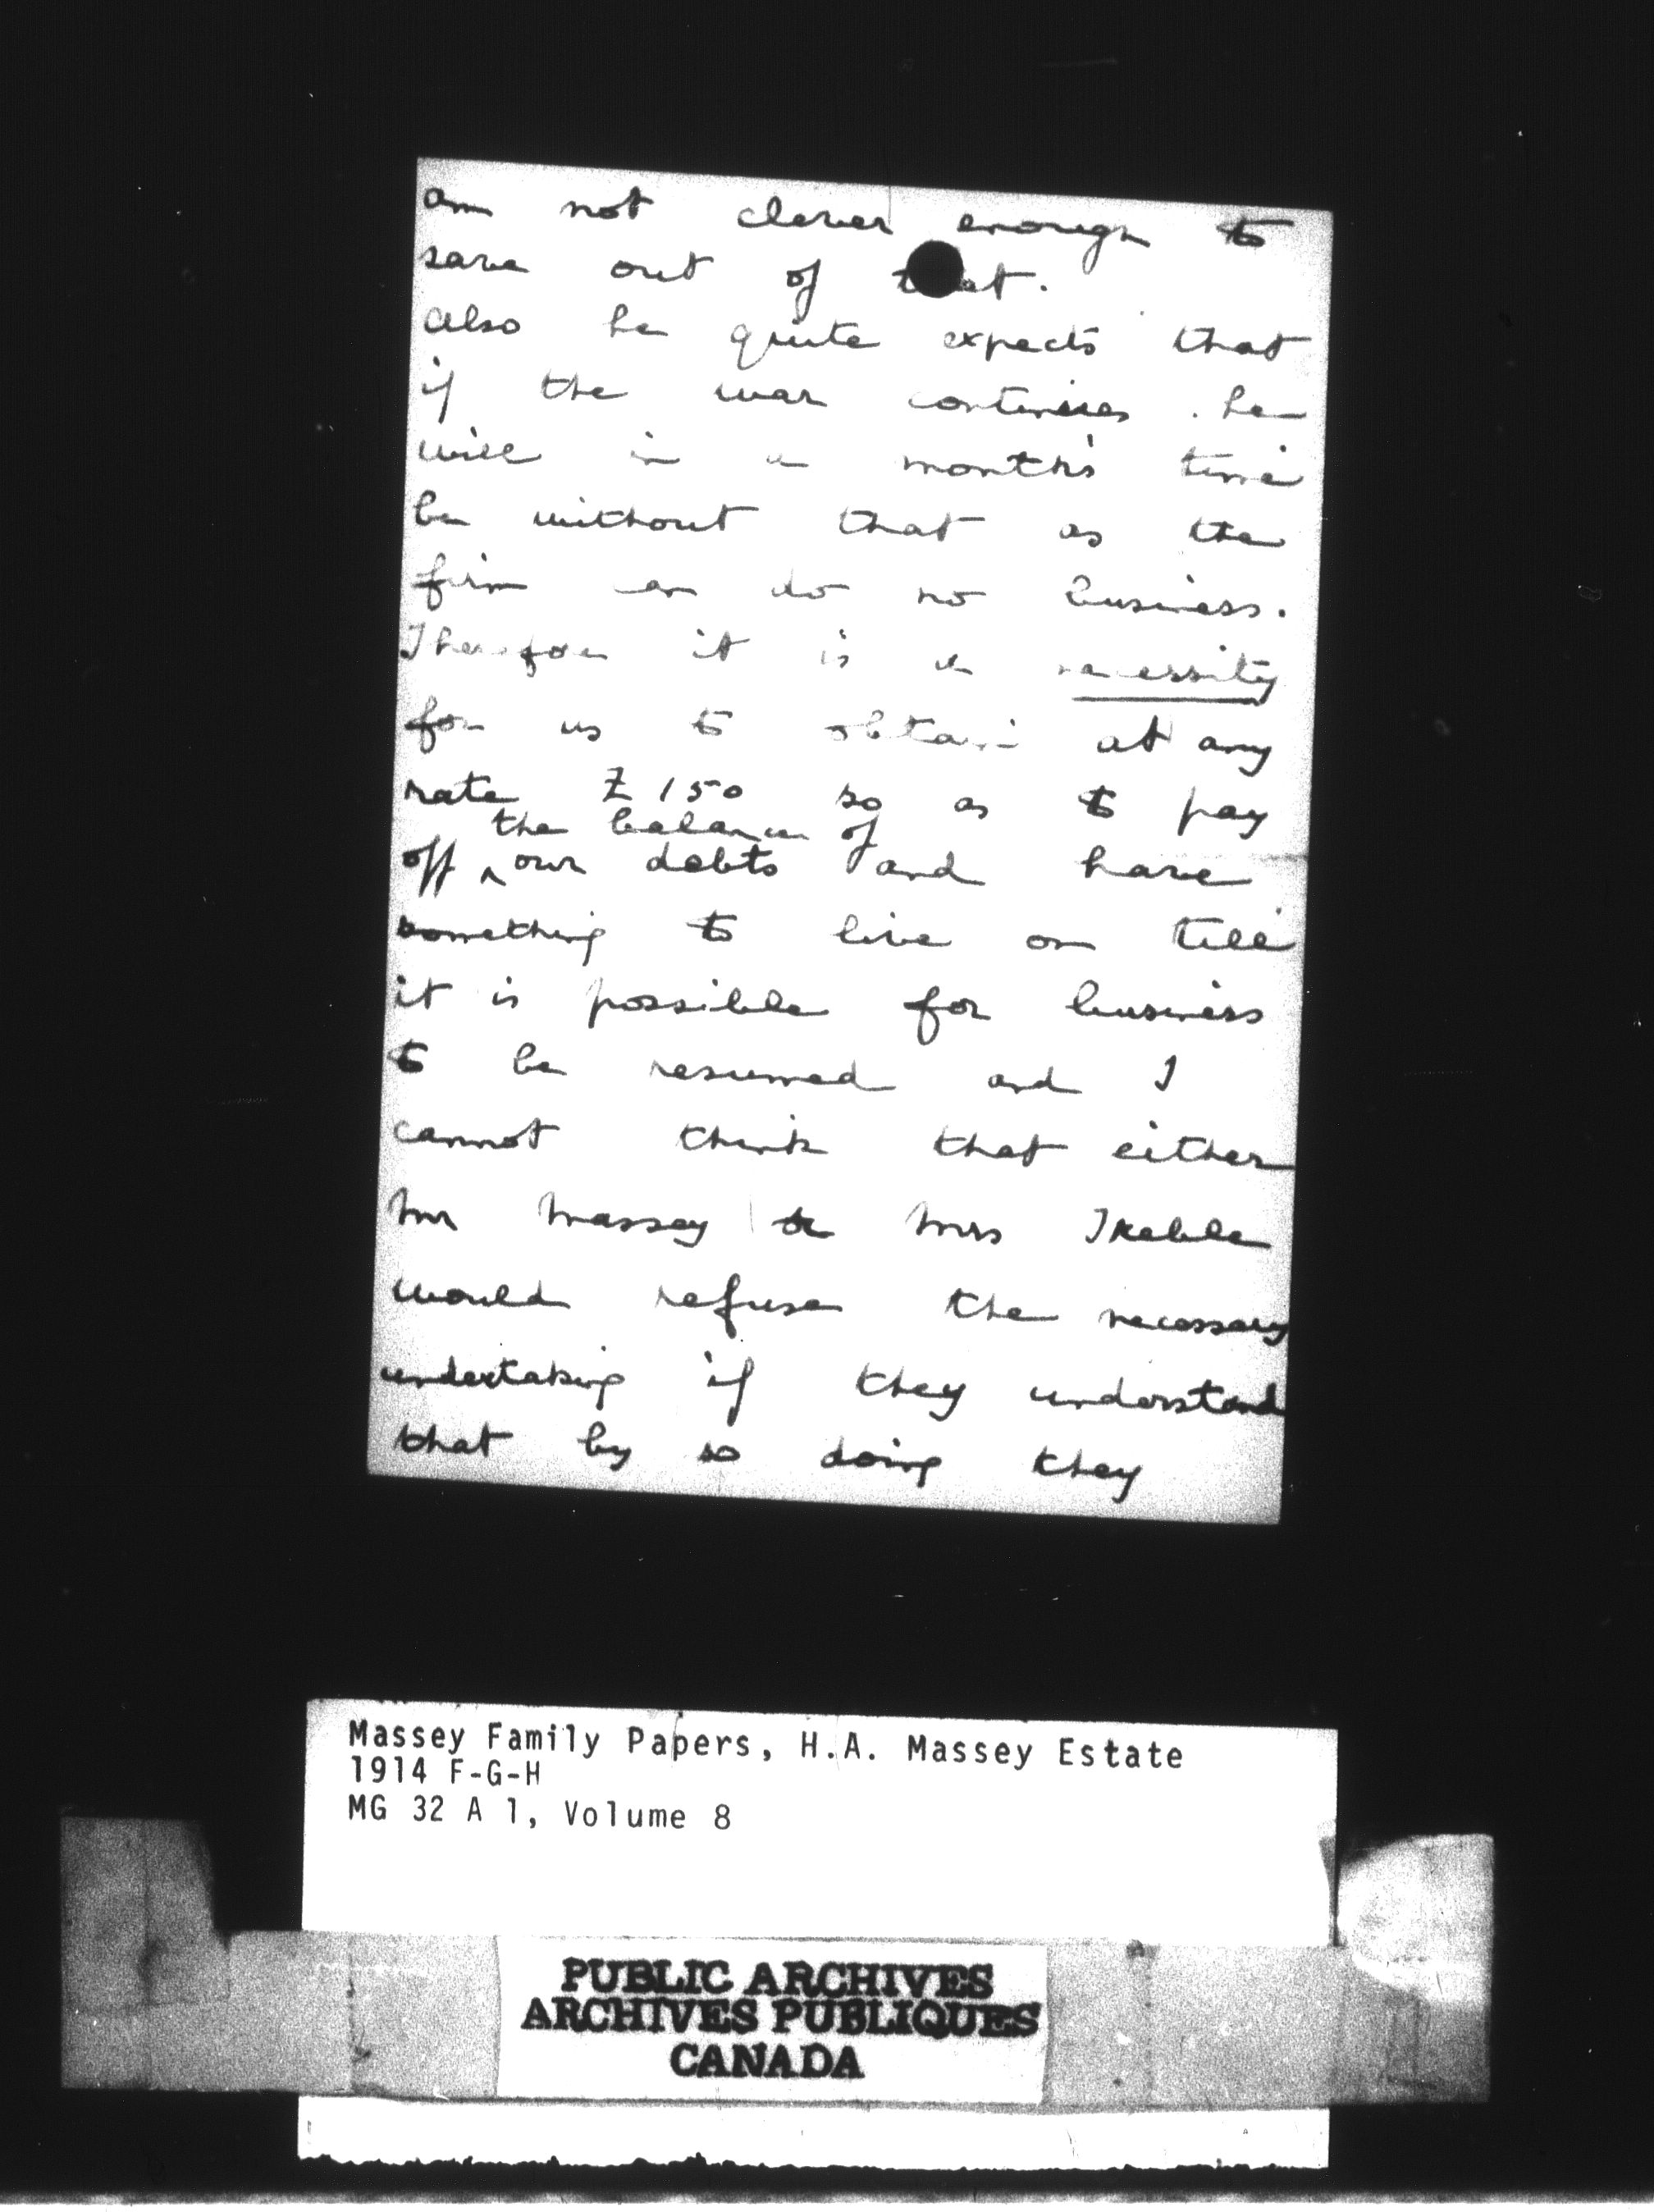 am not clever enough to
save out of that.
Also he quite expects that
if the war continues he
will in a month's time
be without that as the
firm can do no business.
Therefore it is a necessity
for us to obtain at any
rate £150 so as to pay
the balance of
off ^ our debts and have
something to live on till
it is possible for business
to be resumed and I
cannot think that either
Mr Massey or Mrs Treble
would refuse the necessary
undertaking if they understand
that by so doing they
Massey Family Papers, H.A. Massey Estate
1914 F-G-H
MG 32 A 1, Volume 8
PUBLIC ARCHIVES
ARCHIVES PUBLIQUES
CANADA